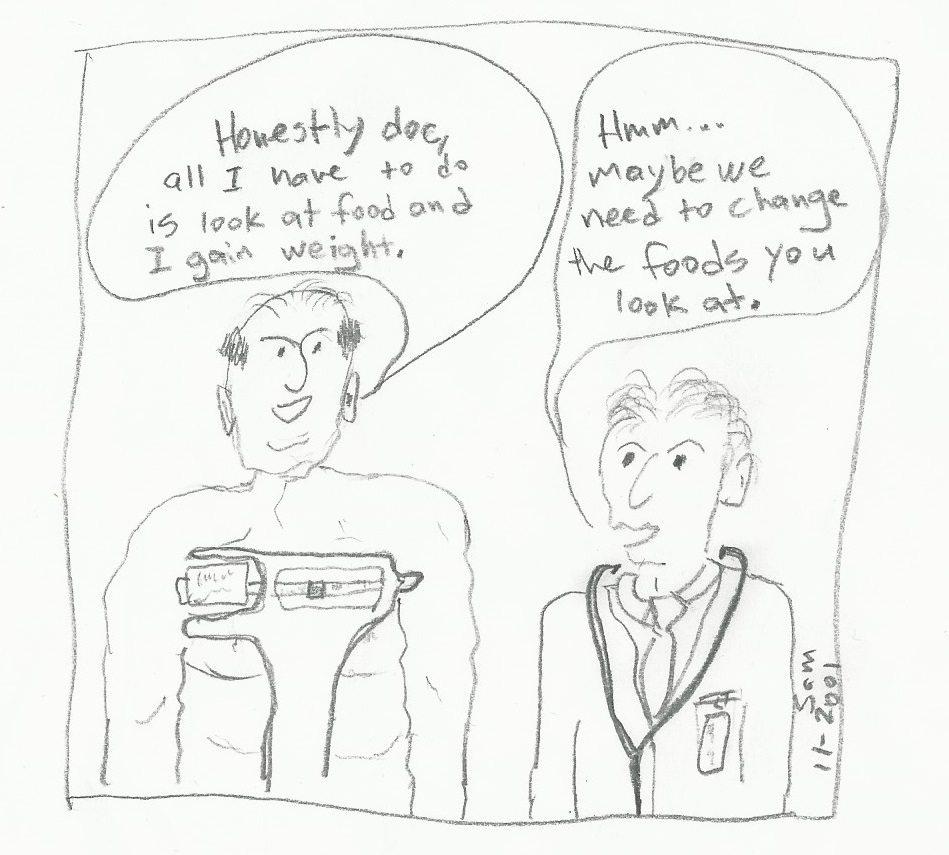 Honestly doc,
all I have to do
is look at food and
I gain weight.
Hmm...
maybe we
need to change
the foods you
look at.
Sam
11-2001